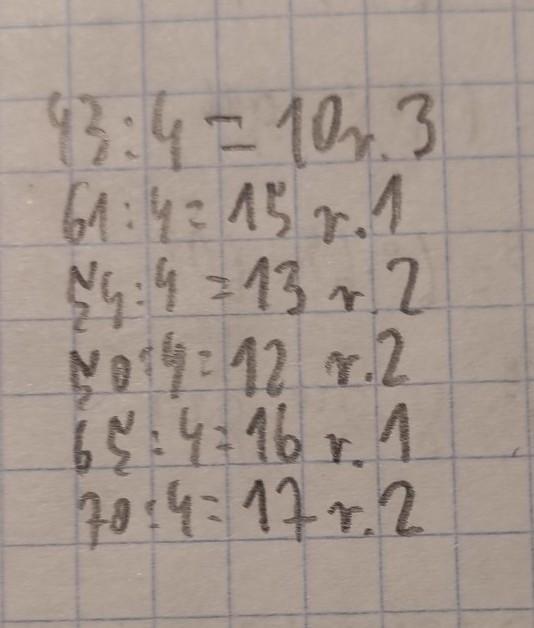 43:4=10r.3
61:4=15 r.1
54:4=13 r.2
50:4=12 r.2
65:4=16 r.1
70:4=17 r.2